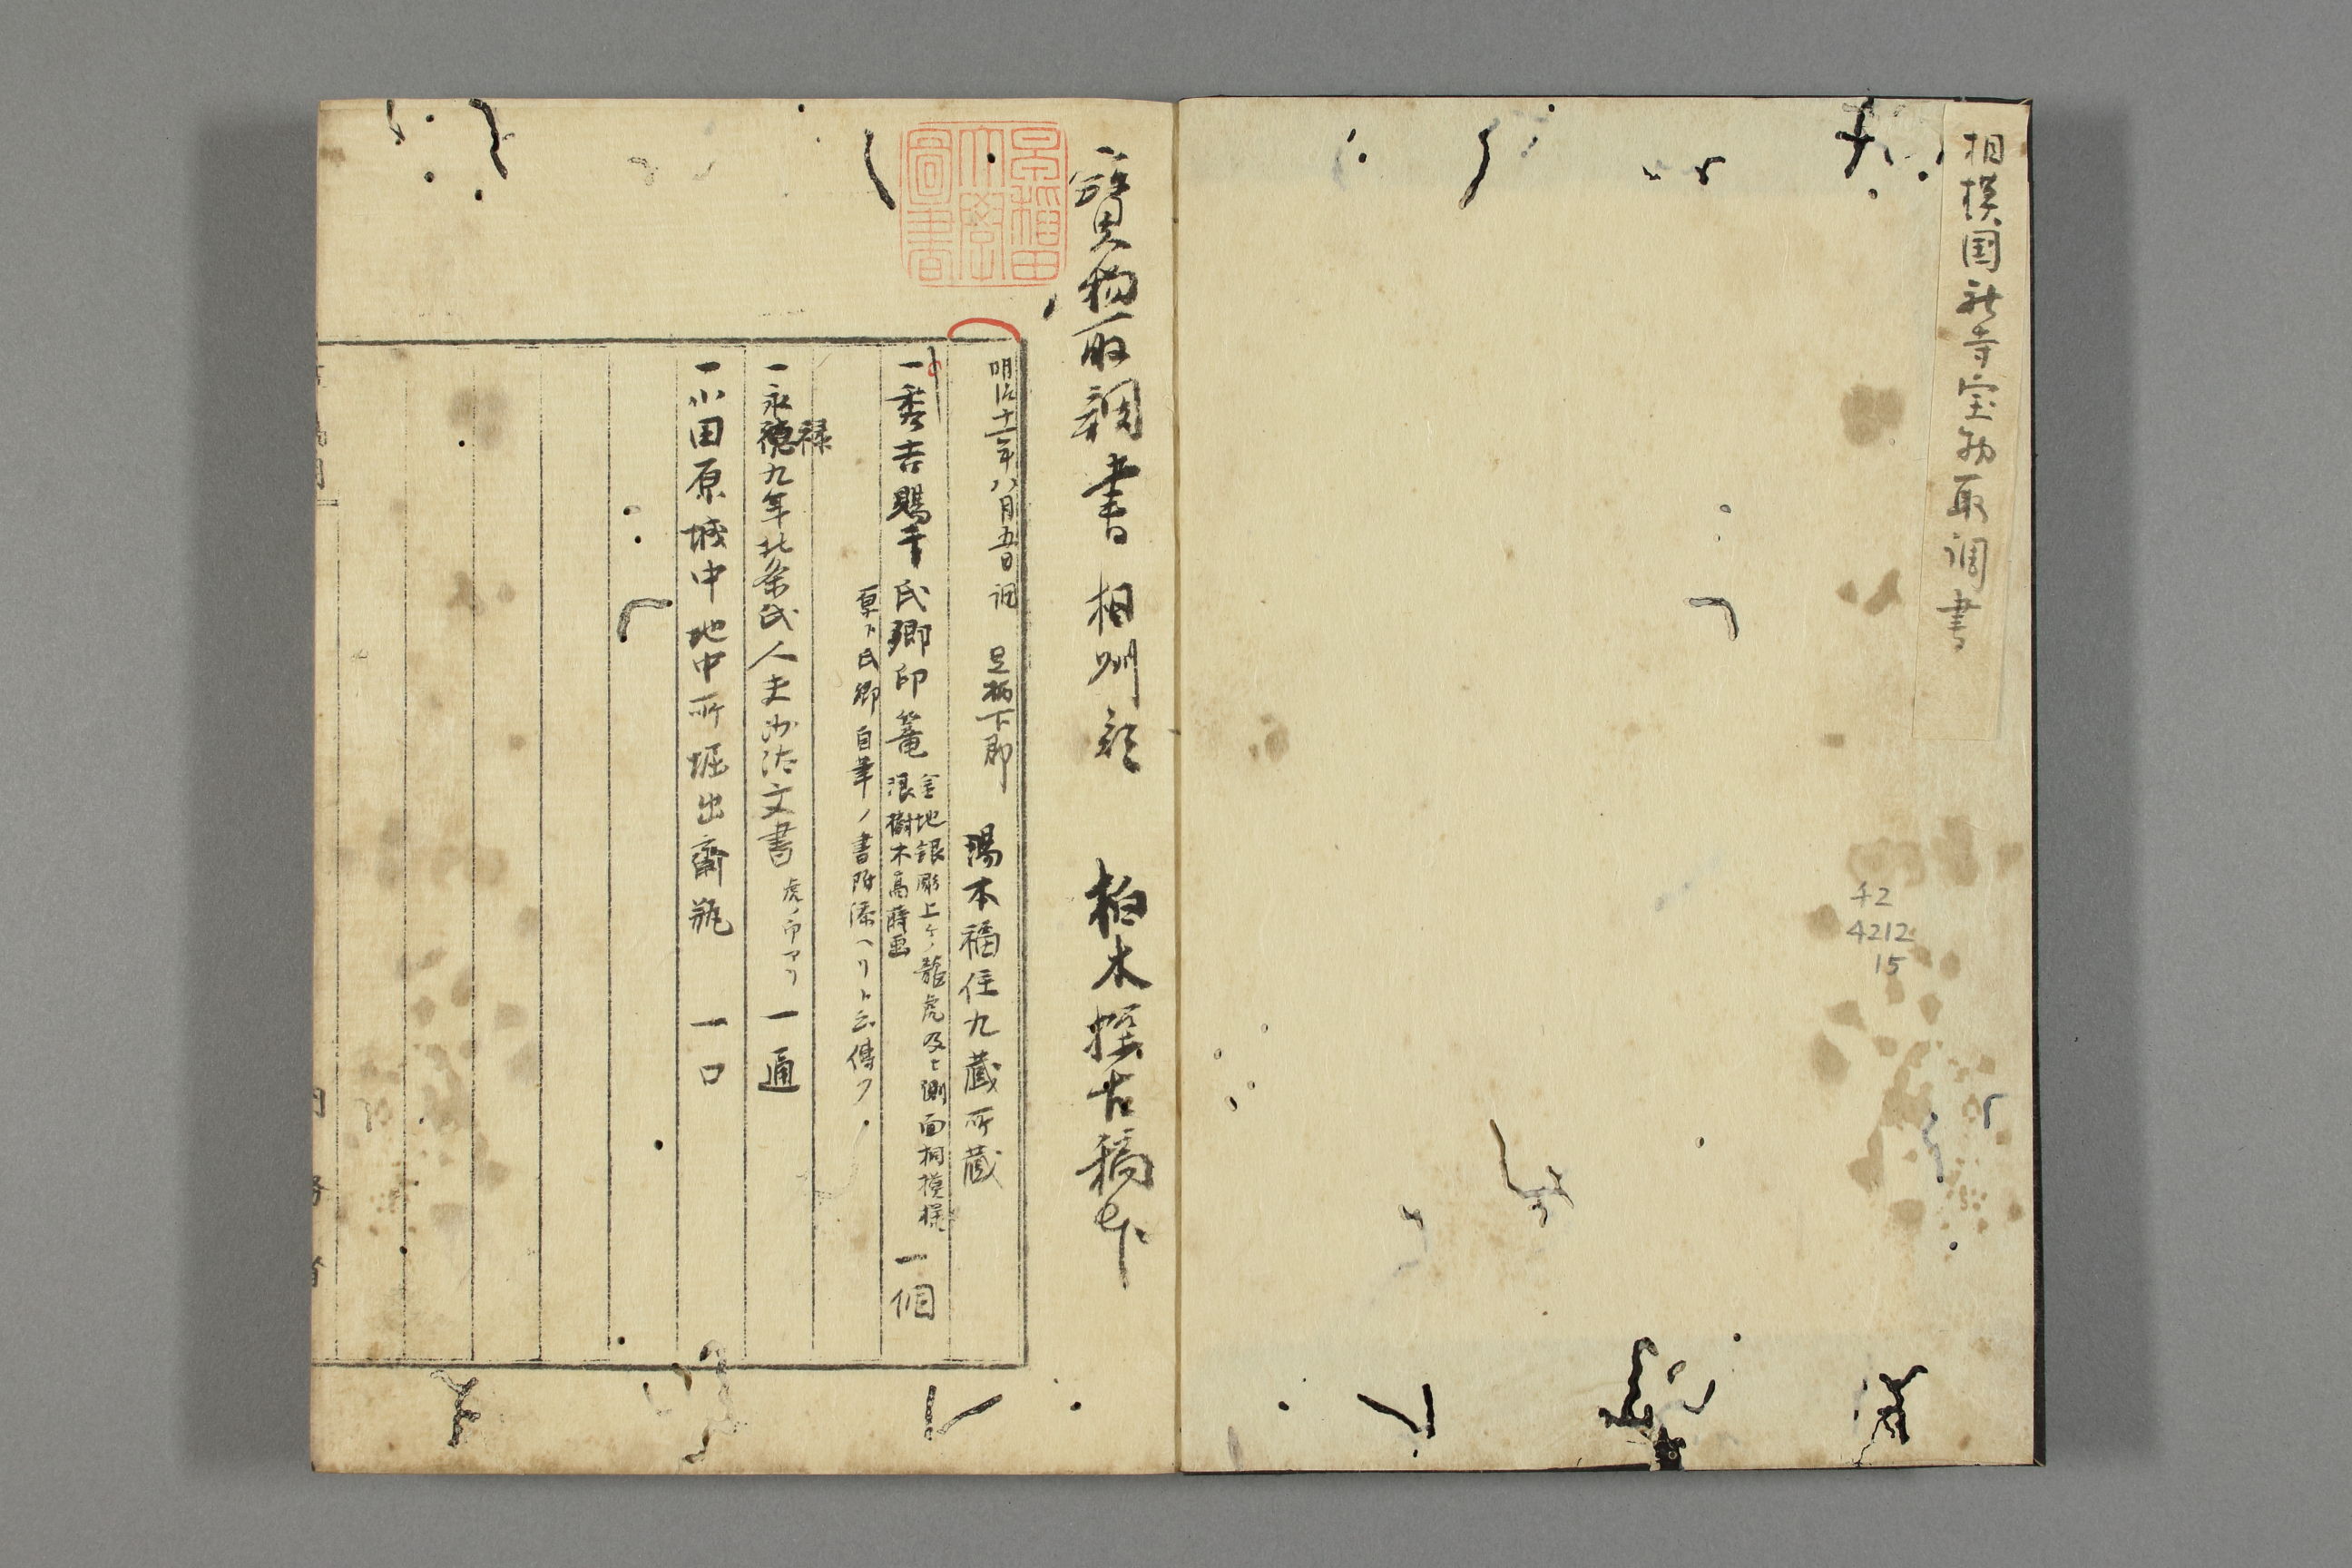 相模国社寺宝物取调書
チ2
4212
15
寳物取調書 相州部 柏木探古稿本
早稲田大學圖書
明治十一年八月五日調 足柄下郡 湯本福住九蔵所蔵
一秀吉賜 氏郷印篭 金地銀彫上ケノ龍虎及ヒ側面桐摸樣
浪樹木高蒔画 一個
裏ニ氏郷自筆ノ書附添ヘリト云傳フ
禄
一永德九年北条氏人夫沙汰文書 虎ノ印アリ 一通
一小田原城中地中所堀出齋瓶 一口
内務省